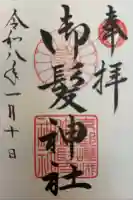 奉拝
御髪神社
令和八年一月十日